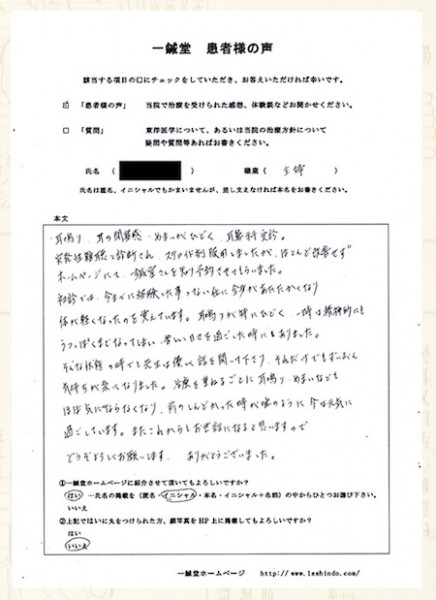 一鍼堂 患者様の声
該当する項目の口にチェックをしていただき、お答えいただければ幸いです。
☑ 「患者様の声」 当院で治療を受けられた感想、体験談などお聞かせください。
□ 「質問」 東洋医学について、あるいは当院の治療方針について
疑問や質問等あればお書きください。
氏名 ( ) 職業 ( 主婦 )
氏名は匿名、イニシャルでもかまいませんが、差し支えなければ本名をお書きください。
本文
耳鳴り、耳の閉塞感・めまいがひどく、耳鼻科受診。
突発性難聴と診断され、ステロイド剤服用しましたが、ほとんど改善せず
ホームページにて、一鍼堂さんを知り予約させてもらいました。
初診では、今までに経験した事のない位に全身があたたかくなり
体が軽くなったのを覚えています。耳鳴りが特にひどく、一時は精神的にも
うつっぽくまでなってしまい、苦しい日々を過ごした時にもありました。
そんな状態の時でも先生は優しく話を聞いて下さり、それだけでもずいぶん
気持ちが楽になりました。治療を重ねるごとに耳鳴り・めまいなども
ほぼ気にならなくなり、前のしんどかった時が嘘のように今は元気に
過ごしています。またこれからもお世話になると思いますので
どうぞよろしくお願いします。 ありがとうございました。
①一鍼堂ホームページに紹介させて頂いてもよろしいですか？
はい …氏名の掲載を（匿名・イニシャル・本名・イニシャル＋名前）の中からひとつお選び下さい。
いいえ
②上記ではいに丸をつけられた方、顔写真をHP上に掲載してもよろしいですか？
はい
いいえ
一鍼堂ホームページ http://www.1sshindo.com/